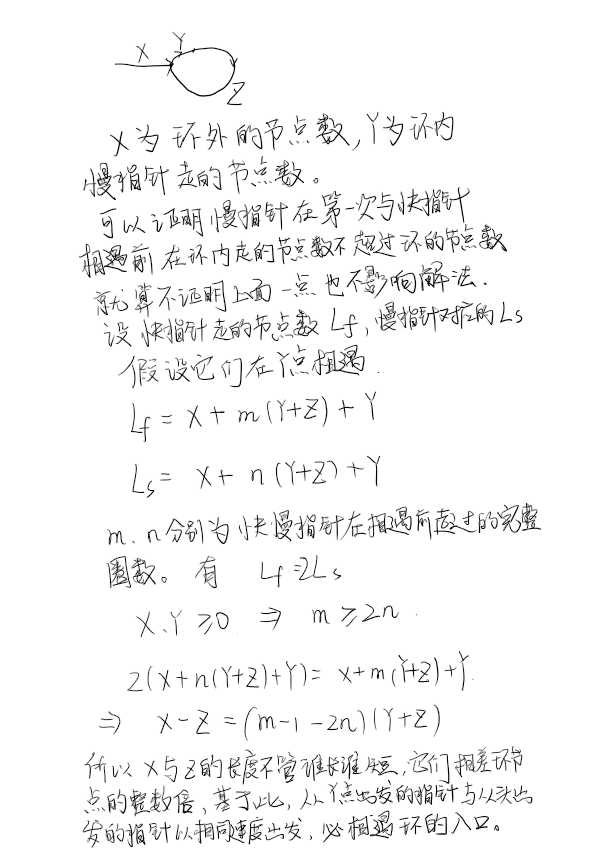 X Y
Z
X为环外的节点数,Y为环内
慢指针走的节点数。
可以证明慢指针在第一次与快指针
相遇前在环内走的节点数不超过环的节点数
就算不证明上面一点也不影响解法.
设快指针走的节点数Lf,慢指针对应的Ls
假设它们在Y点相遇.
Lf = X + m(Y+Z) + Y
Ls = X + n(Y+Z) + Y
m、n分别为快慢指针在相遇前走过的完整
圈数。有 Lf=2Ls
X、Y ≥0 ⇒ m ≥ 2n.
2(X+n(Y+Z)+Y)= X+m(Y+Z)+Y.
⇒ X-Z = (m-1-2n)(Y+Z)
所以X与Z的长度不管谁长谁短,它们相差环节
点的整数倍,基于此,从Y点出发的指针与从头出
发的指针以相同速度出发,必相遇环的入口。